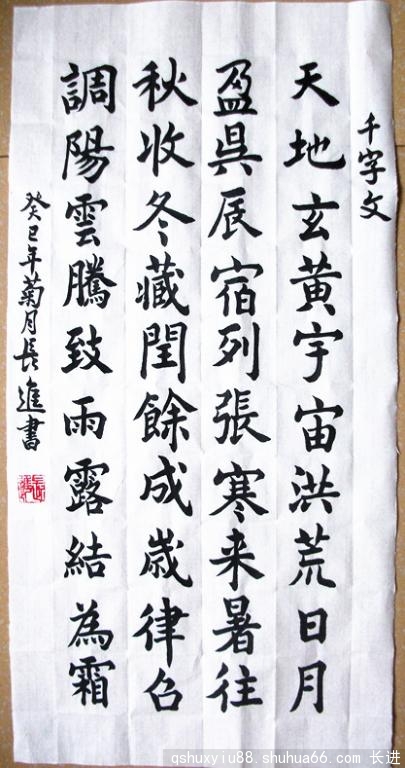 千字文
天地玄黄宇宙洪荒日月
盈昃辰宿列張寒来暑往
秋收冬藏閏餘成歲律召
調陽雲騰致雨露結為霜
癸巳年菊月長進書
qshuxyiu88.shuhua66.com 长进